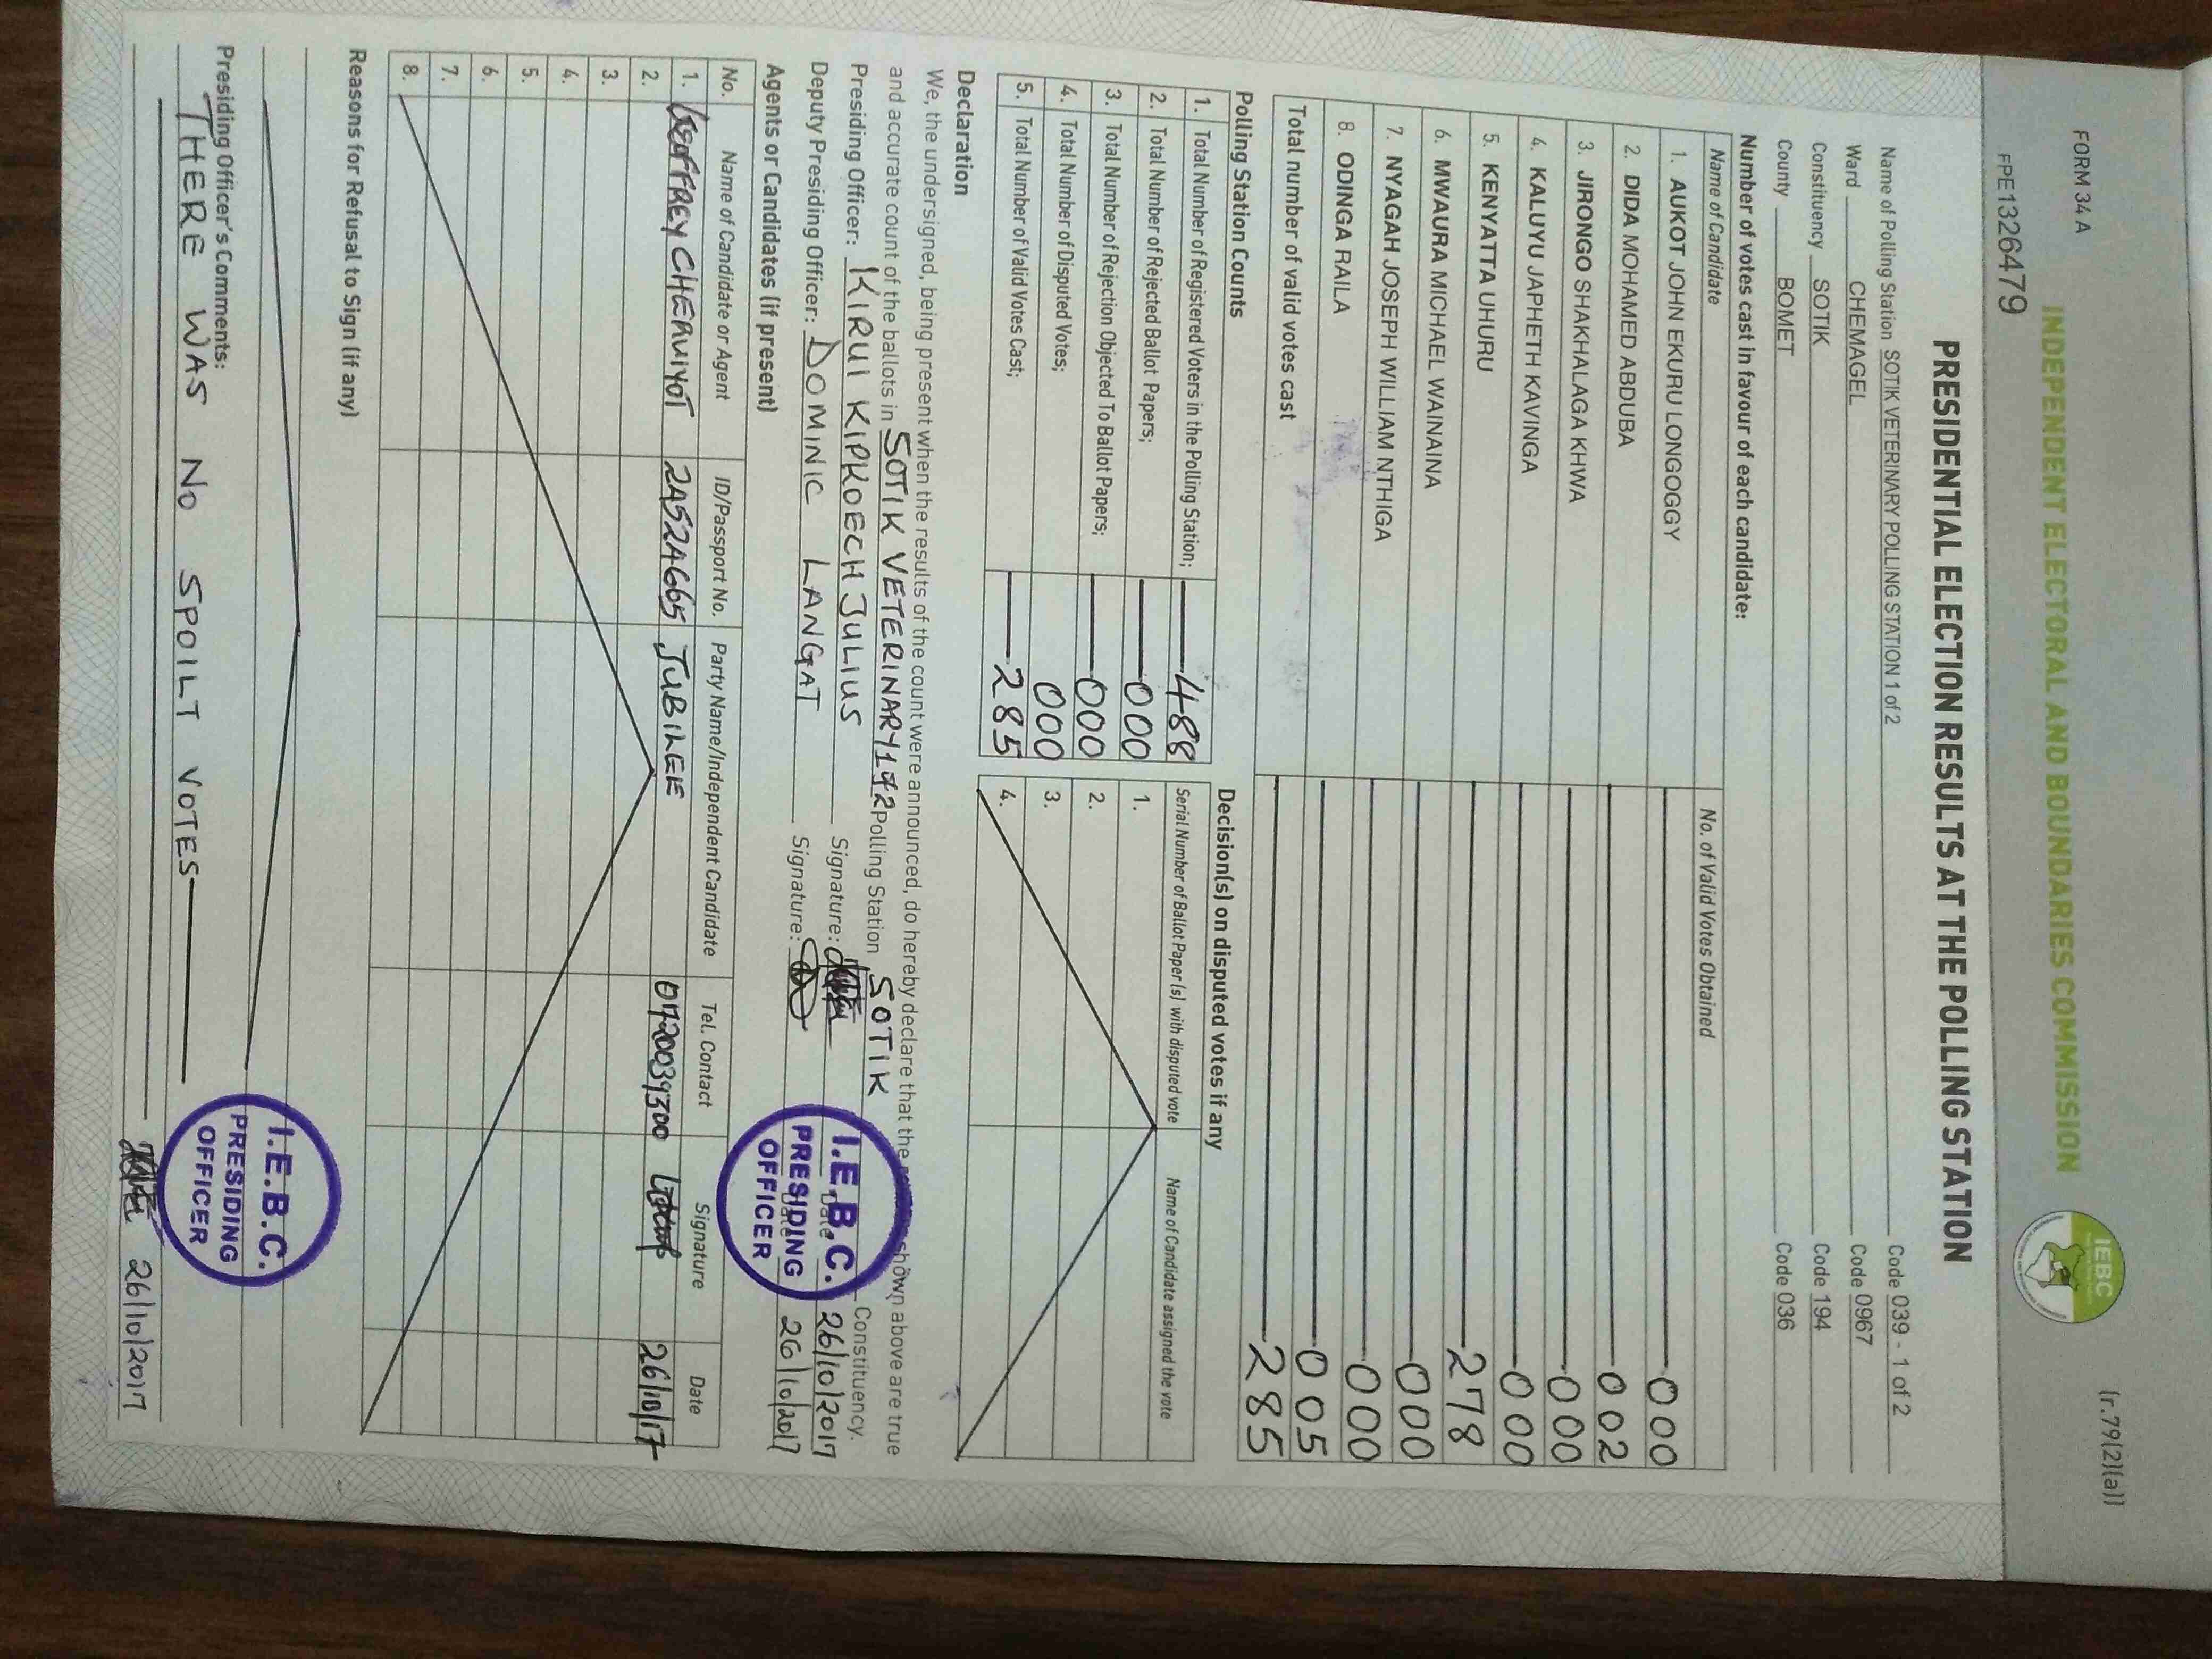 FORM 34 A
(r.79(2)(a))
FPE1326479
INDEPENDENT ELECTORAL AND BOUNDARIES COMMISSION
IEBC
PRESIDENTIAL ELECTION RESULTS AT THE POLLING STATION
Name of Polling Station SOTIK VETERINARY POLLING STATION 1 of 2 Code 039 - 1 of 2
Ward CHEMAGEL Code 0967
Constituency SOTIK Code 194
County BOMET Code 036
Number of votes cast in favour of each candidate:
Name of Candidate No. of Valid Votes Obtained
1. AUKOT JOHN EKURU LONGOGGY 000
2. DIDA MOHAMED ABDUBA 002
3. JIRONGO SHAKHALAGA KHWA 000
4. KALUYU JAPHETH KAVINGA 000
5. KENYATTA UHURU 278
6. MWAURA MICHAEL WAINAINA 000
7. NYAGAH JOSEPH WILLIAM NTHIGA 000
8. ODINGA RAILA 005
Total number of valid votes cast 285
Polling Station Counts
1. Total Number of Registered Voters in the Polling Station; 488
2. Total Number of Rejected Ballot Papers; 000
3. Total Number of Rejection Objected To Ballot Papers; 000
4. Total Number of Disputed Votes; 000
5. Total Number of Valid Votes Cast; 285
Decision(s) on disputed votes if any
Serial Number of Ballot Paper(s) with disputed vote Name of Candidate assigned the vote
1.
2.
3.
4.
Declaration
We, the undersigned, being present when the results of the count were announced, do hereby declare that the shown above are true
and accurate count of the ballots in SOTIK VETERINARY 1 2 Polling Station SOTIK Constituency.
Presiding Officer: KIRUI KIPKOECH JULIUS Signature: Date 26/10/2017
Deputy Presiding Officer: DOMINIC LANGAT Signature: Date 26/10/2017
I.E.B.C.
PRESIDING
OFFICER
Agents or Candidates (if present)
No. Name of Candidate or Agent ID/Passport No. Party Name/Independent Candidate Tel. Contact Signature Date
1. GEOFFREY CHERUIYOT 24524665 JUBILEE 0720039300 26/10/17
2.
3.
4.
5.
6.
7.
8.
Reasons for Refusal to Sign (if any)
Presiding Officer's Comments:
THERE WAS NO SPOILT VOTES
I.E.B.C.
PRESIDING
OFFICER
26/10/2017